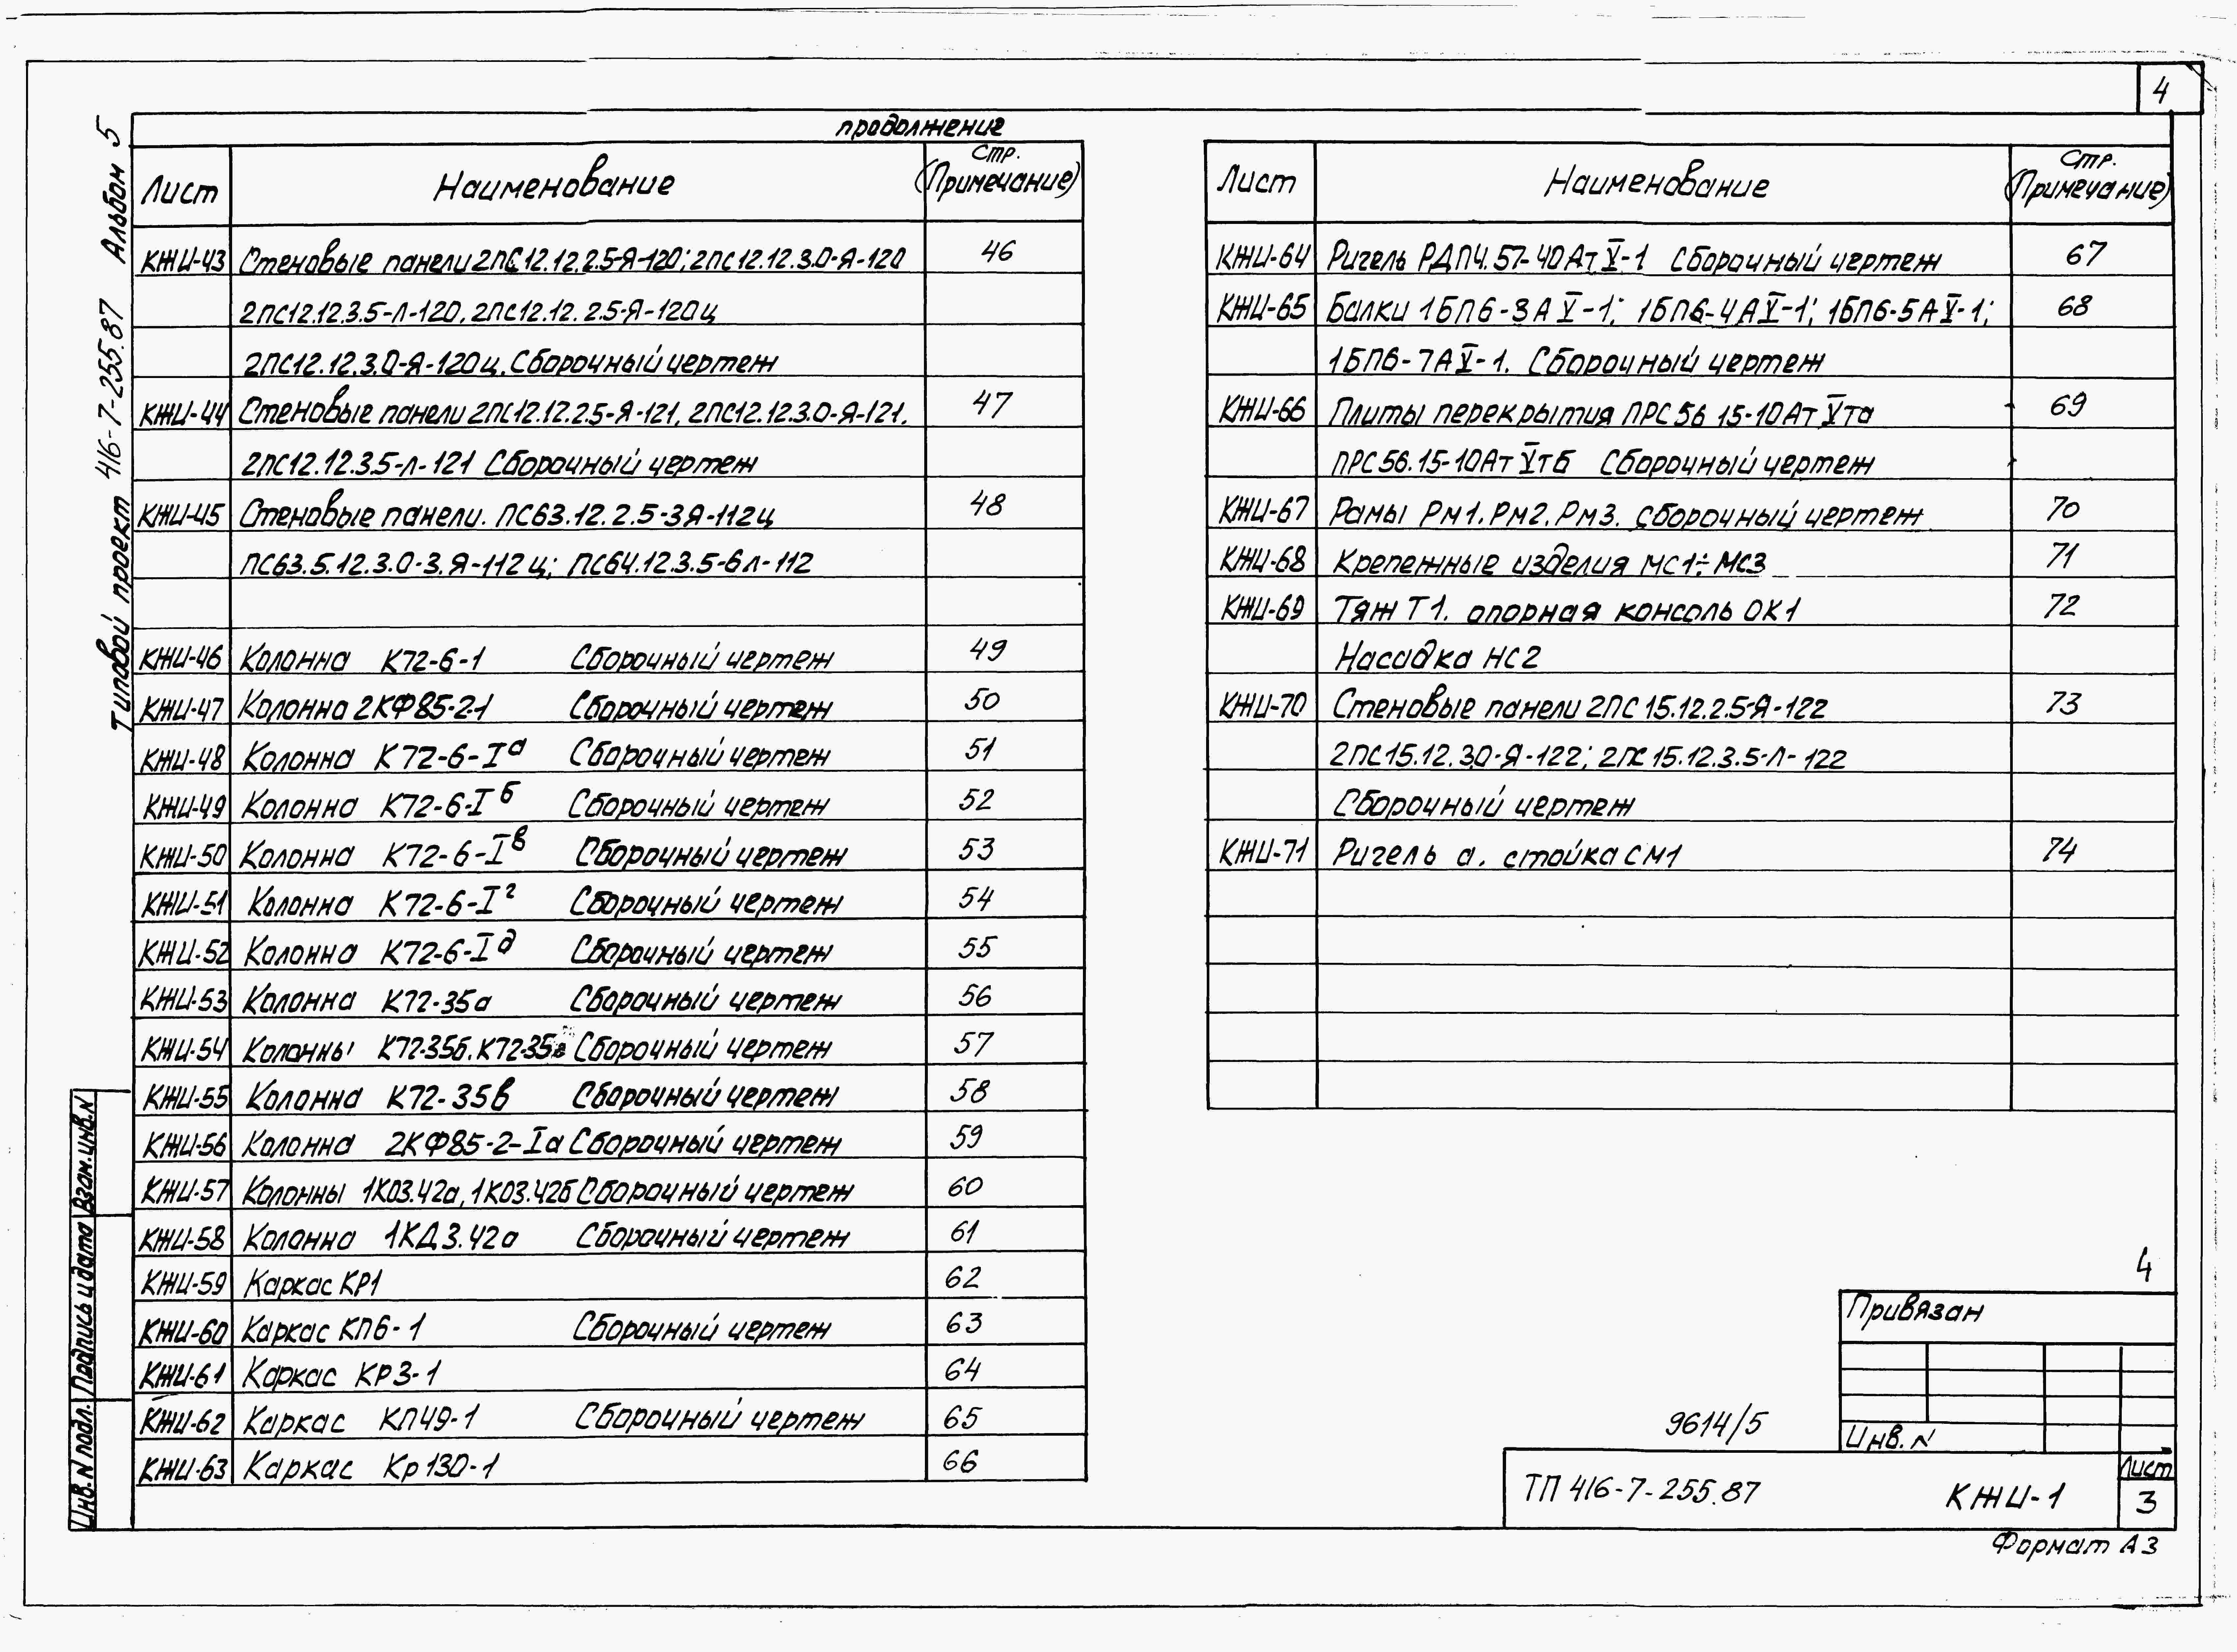 4
Типовой проект 416-7-255.87 Альбом 5
продолжение
Лист Наименование Стр. (Примечание)
КЖИ-43 Стеновые панели 2ПС12.12.2.5-Я-120; 2ПС12.12.3.0-Я-120 46
2ПС12.12.3.5-Л-120, 2ПС12.12.2.5-Я-120ц
2ПС12.12.3.0-Я-120ц. Сборочный чертеж
КЖИ-44 Стеновые панели 2ПС12.12.2.5-Я-121, 2ПС12.12.3.0-Я-121. 47
2ПС12.12.3.5-Л-121 Сборочный чертеж
КЖИ-45 Стеновые панели. ПС63.12.2.5-3Я-112ц 48
ПС63.5.12.3.0-3.Я-112ц; ПС64.12.3.5-6Л-112
КЖИ-46 Колонна К72-6-1 Сборочный чертеж 49
КЖИ-47 Колонна 2КФ85-2-1 Сборочный чертеж 50
КЖИ-48 Колонна К72-6-Iа Сборочный чертеж 51
КЖИ-49 Колонна К72-6-Iб Сборочный чертеж 52
КЖИ-50 Колонна К72-6-Iв Сборочный чертеж 53
КЖИ-51 Колонна К72-6-Iг Сборочный чертеж 54
КЖИ-52 Колонна К72-6-Iд Сборочный чертеж 55
КЖИ-53 Колонна К72-35а Сборочный чертеж 56
КЖИ-54 Колонны К72-35б. Сборочный чертеж 57
КЖИ-55 Колонна К72-35в Сборочный чертеж 58
КЖИ-56 Колонна 2КФ85-2-Iа Сборочный чертеж 59
КЖИ-57 Колонны 1К03.42а, 1К03.42б Сборочный чертеж 60
КЖИ-58 Колонна 1КД3.42а Сборочный чертеж 61
КЖИ-59 Каркас КР1 62
КЖИ-60 Каркас КП6-1 Сборочный чертеж 63
КЖИ-61 Каркас КР3-1 64
КЖИ-62 Каркас КП49-1 Сборочный чертеж 65
КЖИ-63 Каркас Кр130-1 66
Лист Наименование Стр. (Примечание)
КЖИ-64 Ригель РДП4.57-40АтV-1 Сборочный чертеж 67
КЖИ-65 Балки 1БП6-3АV-1; 1БП6-4АV-1; 1БП6-5АV-1; 68
1БП6-7АV-1. Сборочный чертеж
КЖИ-66 Плиты перекрытия ПРС56 15-10АтVта 69
ПРС56.15-10АтVтб Сборочный чертеж
КЖИ-67 Рамы Рм1. Рм2. Рм3. сборочный чертеж 70
КЖИ-68 Крепежные изделия МС1÷МС3 71
КЖИ-69 Тяж Т1. опорная консоль ОК1 72
Насадка НС2
КЖИ-70 Стеновые панели 2ПС15.12.2.5-Я-122 73
2ПС15.12.3.0-Я-122; 2ПС15.12.3.5-Л-122
Сборочный чертеж
КЖИ-71 Ригель а. стойка СМ1 74
4
Привязан
Инв. N
9614/5
ТП 416-7-255.87 КЖИ-1
Лист
3
Формат А3
Инв. N подл. Подпись и дата Взам. инв. N